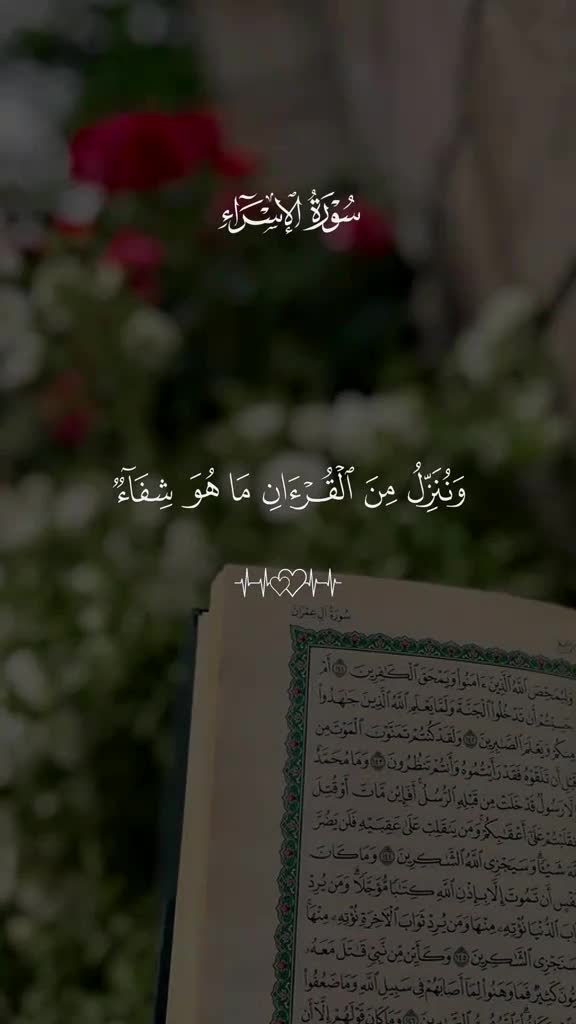 سُورَةُ الإِسْرَاء
وَنُنَزِّلُ مِنَ ٱلۡقُرۡءَانِ مَا هُوَ شِفَآءٞ
سُورَةُ آلِ عِمْرَانَ
وَلِيُمَحِّصَ ٱللَّهُ ٱلَّذِينَ ءَامَنُواْ وَيَمۡحَقَ ٱلۡكَٰفِرِينَ ١٤١ أَمۡ
حَسِبۡتُمۡ أَن تَدۡخُلُواْ ٱلۡجَنَّةَ وَلَمَّا يَعۡلَمِ ٱللَّهُ ٱلَّذِينَ جَٰهَدُواْ
مِنكُمۡ وَيَعۡلَمَ ٱلصَّٰبِرِينَ ١٤٢ وَلَقَدۡ كُنتُمۡ تَمَنَّوۡنَ ٱلۡمَوۡتَ مِن
قَبۡلِ أَن تَلۡقَوۡهُ فَقَدۡ رَأَيۡتُمُوهُ وَأَنتُمۡ تَنظُرُونَ ١٤٣ وَمَا مُحَمَّدٌ
إِلَّا رَسُولٞ قَدۡ خَلَتۡ مِن قَبۡلِهِ ٱلرُّسُلُۚ أَفَإِيْن مَّاتَ أَوۡ قُتِلَ
ٱنقَلَبۡتُمۡ عَلَىٰٓ أَعۡقَٰبِكُمۡۚ وَمَن يَنقَلِبۡ عَلَىٰ عَقِبَيۡهِ فَلَن يَضُرَّ
ٱللَّهَ شَيۡـٔٗاۗ وَسَيَجۡزِي ٱللَّهُ ٱلشَّٰكِرِينَ ١٤٤ وَمَا كَانَ
لِنَفۡسٍ أَن تَمُوتَ إِلَّا بِإِذۡنِ ٱللَّهِ كِتَٰبٗا مُّؤَجَّلٗاۗ وَمَن يُرِدۡ
ثَوَابَ ٱلدُّنۡيَا نُؤۡتِهِۦ مِنۡهَا وَمَن يُرِدۡ ثَوَابَ ٱلۡأٓخِرَةِ نُؤۡتِهِۦ مِنۡهَاۚ
وَسَنَجۡزِي ٱلشَّٰكِرِينَ ١٤٥ وَكَأَيِّن مِّن نَّبِيّٖ قَٰتَلَ مَعَهُۥ
رِبِّيُّونَ كَثِيرٞ فَمَا وَهَنُواْ لِمَآ أَصَابَهُمۡ فِي سَبِيلِ ٱللَّهِ وَمَا ضَعُفُواْ